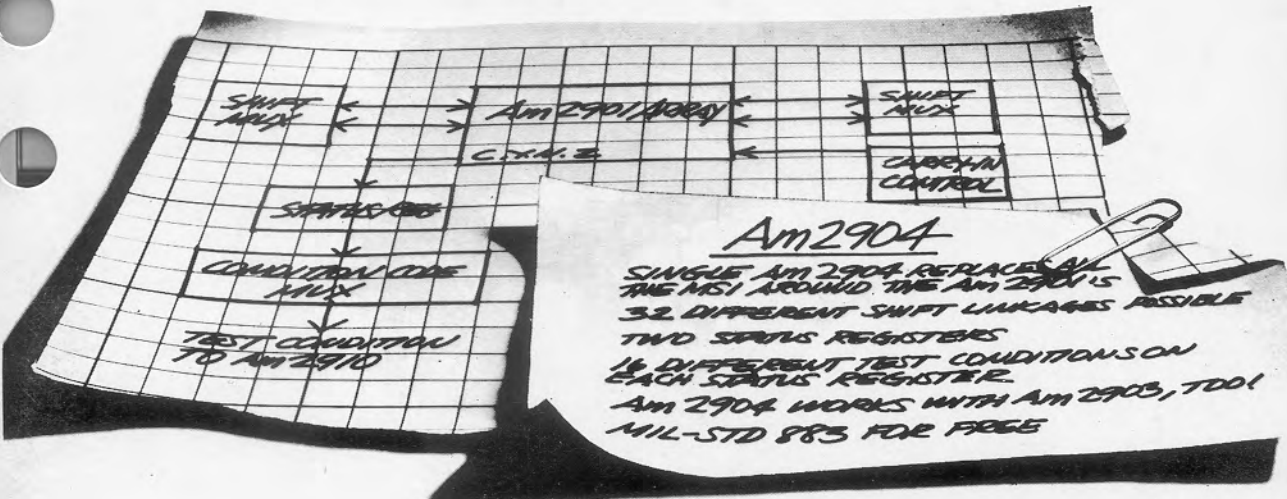 SHIFT
MUX
Am 2901 ARRAY
C.Y.N.Z
SHIFT
MUX
CARRY-IN
CONTROL
STATUS REG
CONDITION CODE
MUX
TEST CONDITION
TO Am 2910
Am2904
SINGLE Am 2904 REPLACES ALL
THE MSI AROUND THE Am 2901'S
32 DIFFERENT SHIFT LINKAGES POSSIBLE
TWO STATUS REGISTERS
16 DIFFERENT TEST CONDITIONS ON
EACH STATUS REGISTER
Am 2904 WORKS WITH Am 2903, TOO!
MIL-STD 883 FOR FREE